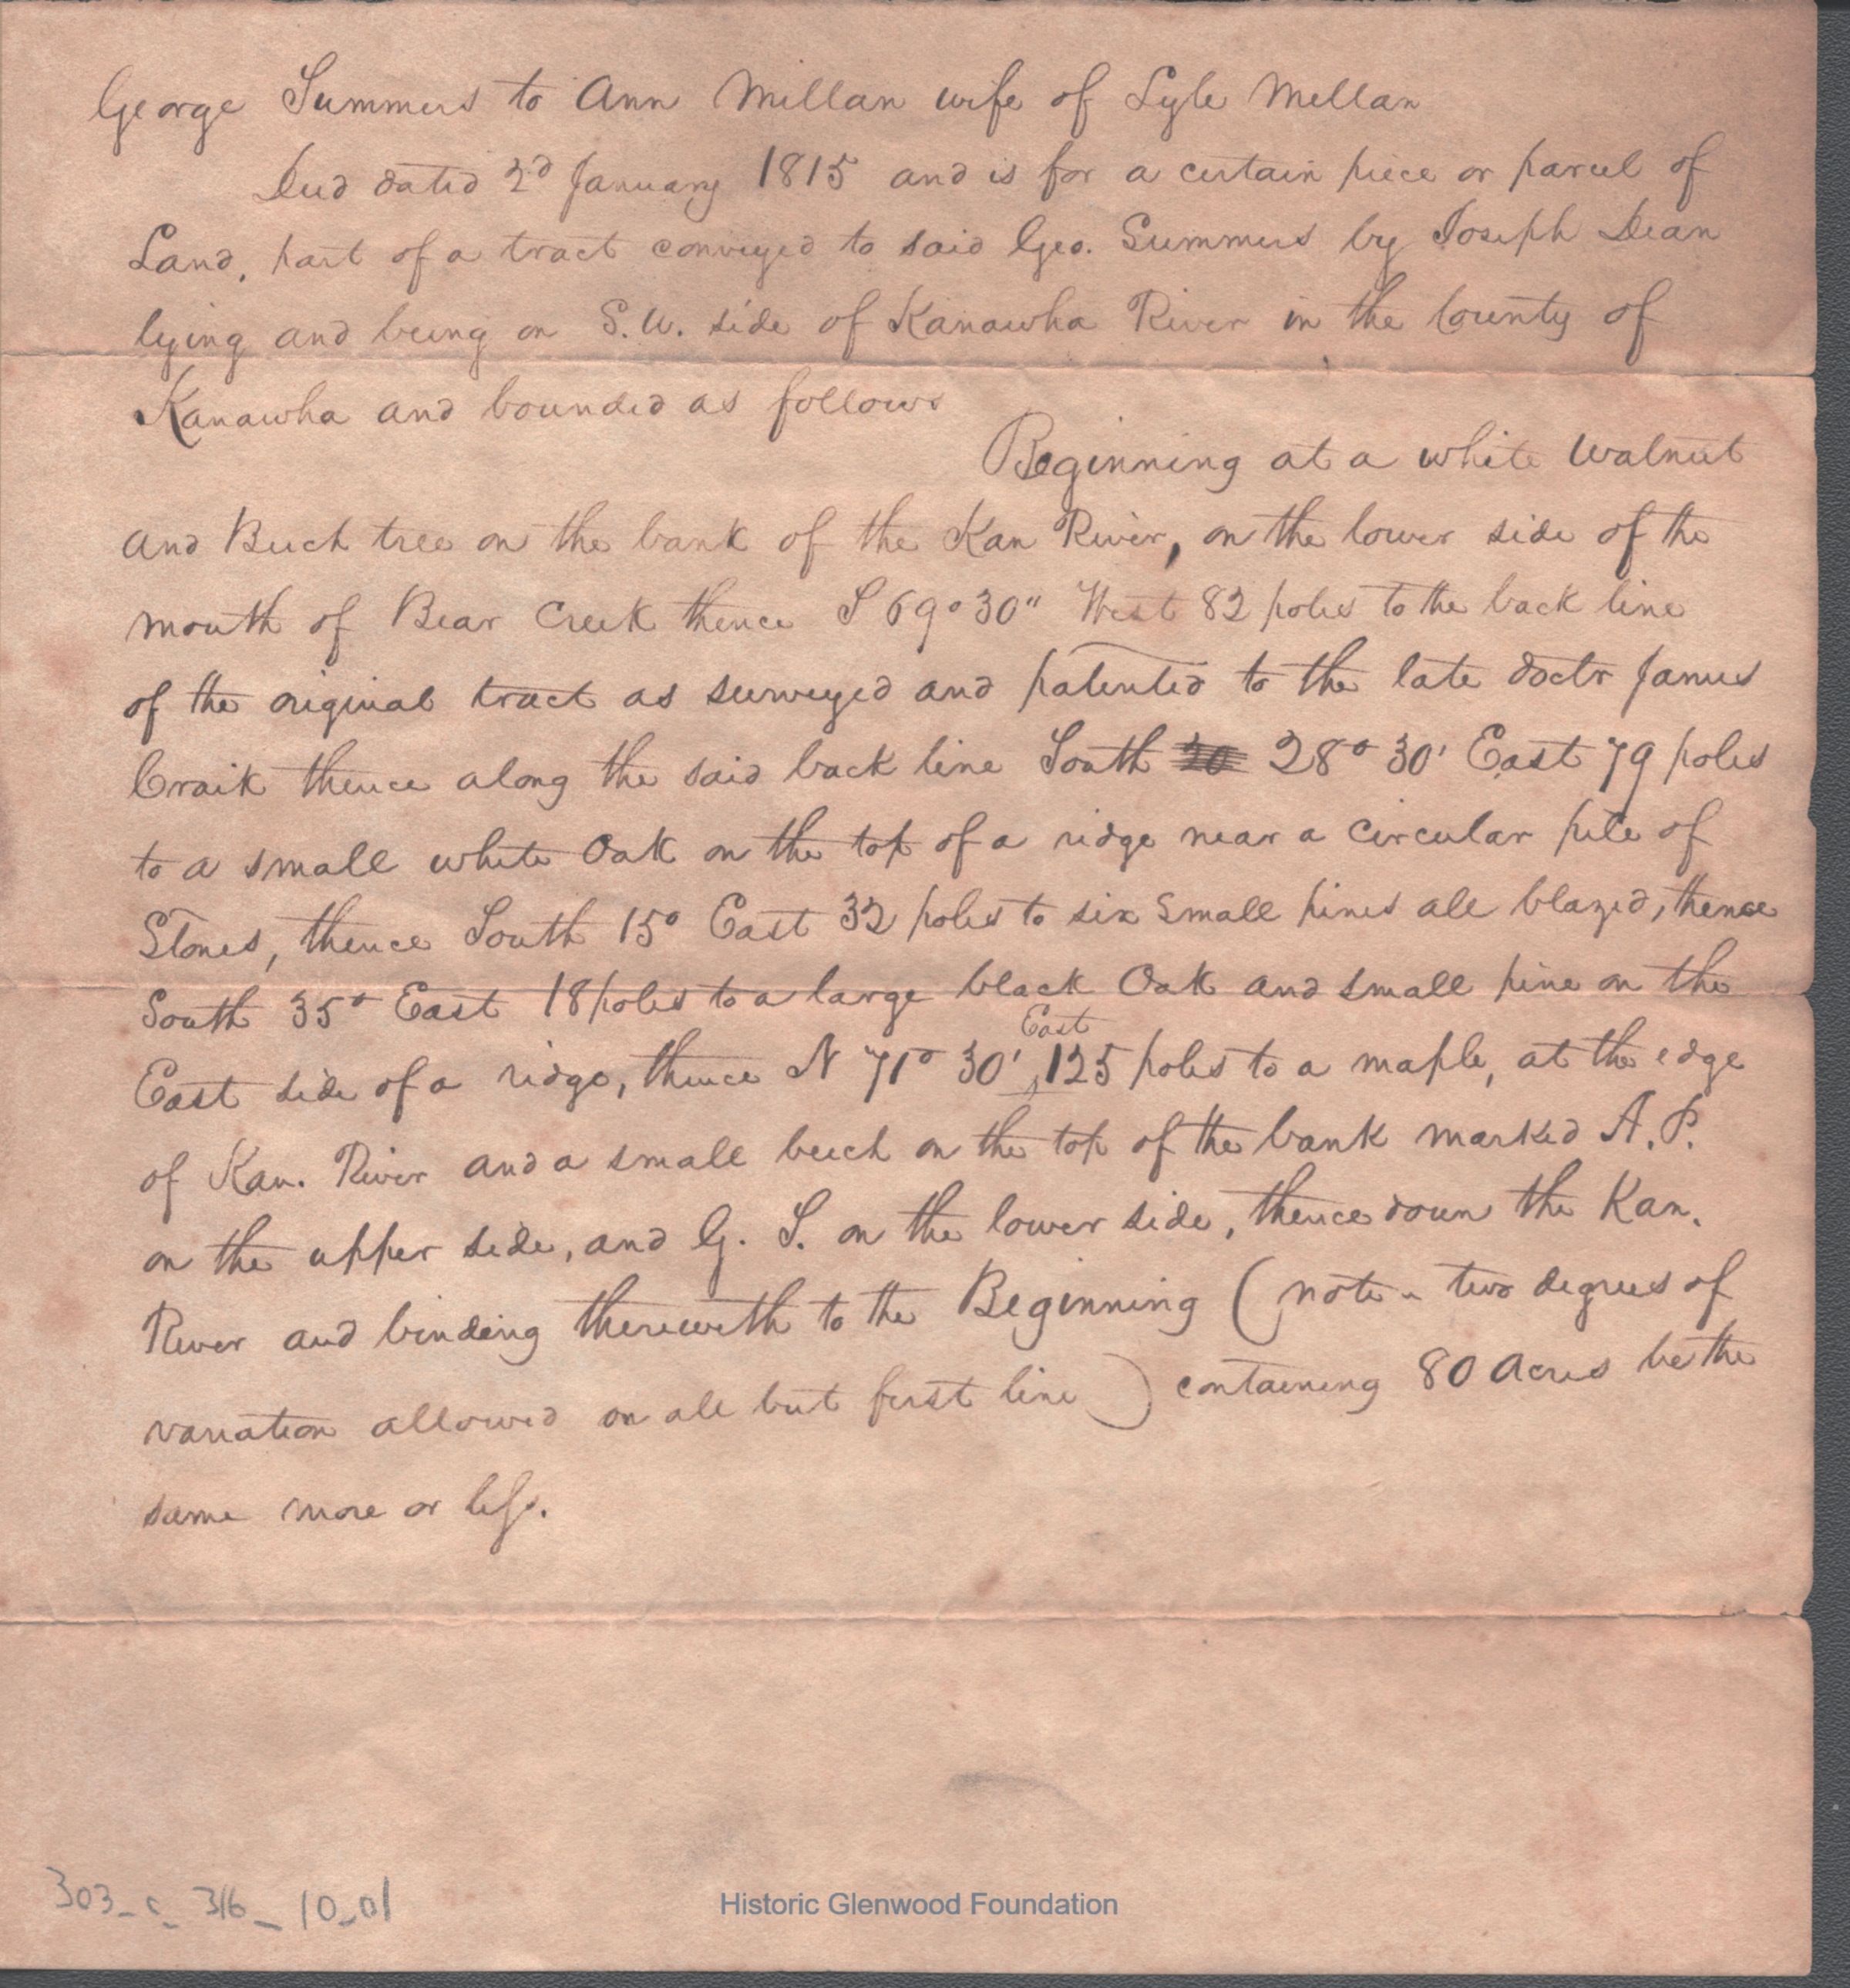 George Summers to Ann Millan wife of Lyle Millan
Deed dated 2d January 1815 and is for a certain piece or parcel of
Land, part of a tract conveyed to said Geo. Summers by Joseph Dean
lying and being on S.W. side of Kanawha River in the County of
Kanawha and bounded as follows
Beginning at a white walnut
and Beech tree on the bank of the Kan River, on the lower side of the
mouth of Bear Creek thence S 69° 30" West 82 poles to the back line
of the original tract as surveyed and patented to the late doctr James
Craik thence along the said back line South 20 28° 30' East 79 poles
to a small white Oak on the top of a ridge near a circular pile of
Stones, thence South 15° East 32 poles to six small pines all blazed, thence
South 35° East 18 poles to a large black Oak and small pine on the
East
East side of a ridge, thence N 71° 30' 125 poles to a maple, at the edge
of Kan. River and a small beech on the top of the bank marked A.P.
on the upper side, and G. S. on the lower side, thence down the Kan.
River and binding therewith to the Beginning (note - two degrees of
variation allowed on all but first line) containing 80 Acres be the
same more or less.
303_c_316_10_01
Historic Glenwood Foundation